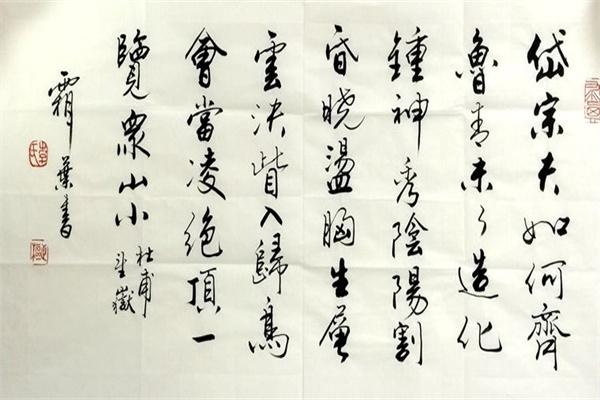 岱宗夫如何齊
魯青未了造化
鍾神秀陰陽割
昏晓盪胸生層
雲決眥入歸鳥
會當凌絕頂一
覽眾山小
杜甫
望嶽
霜葉書
李氏